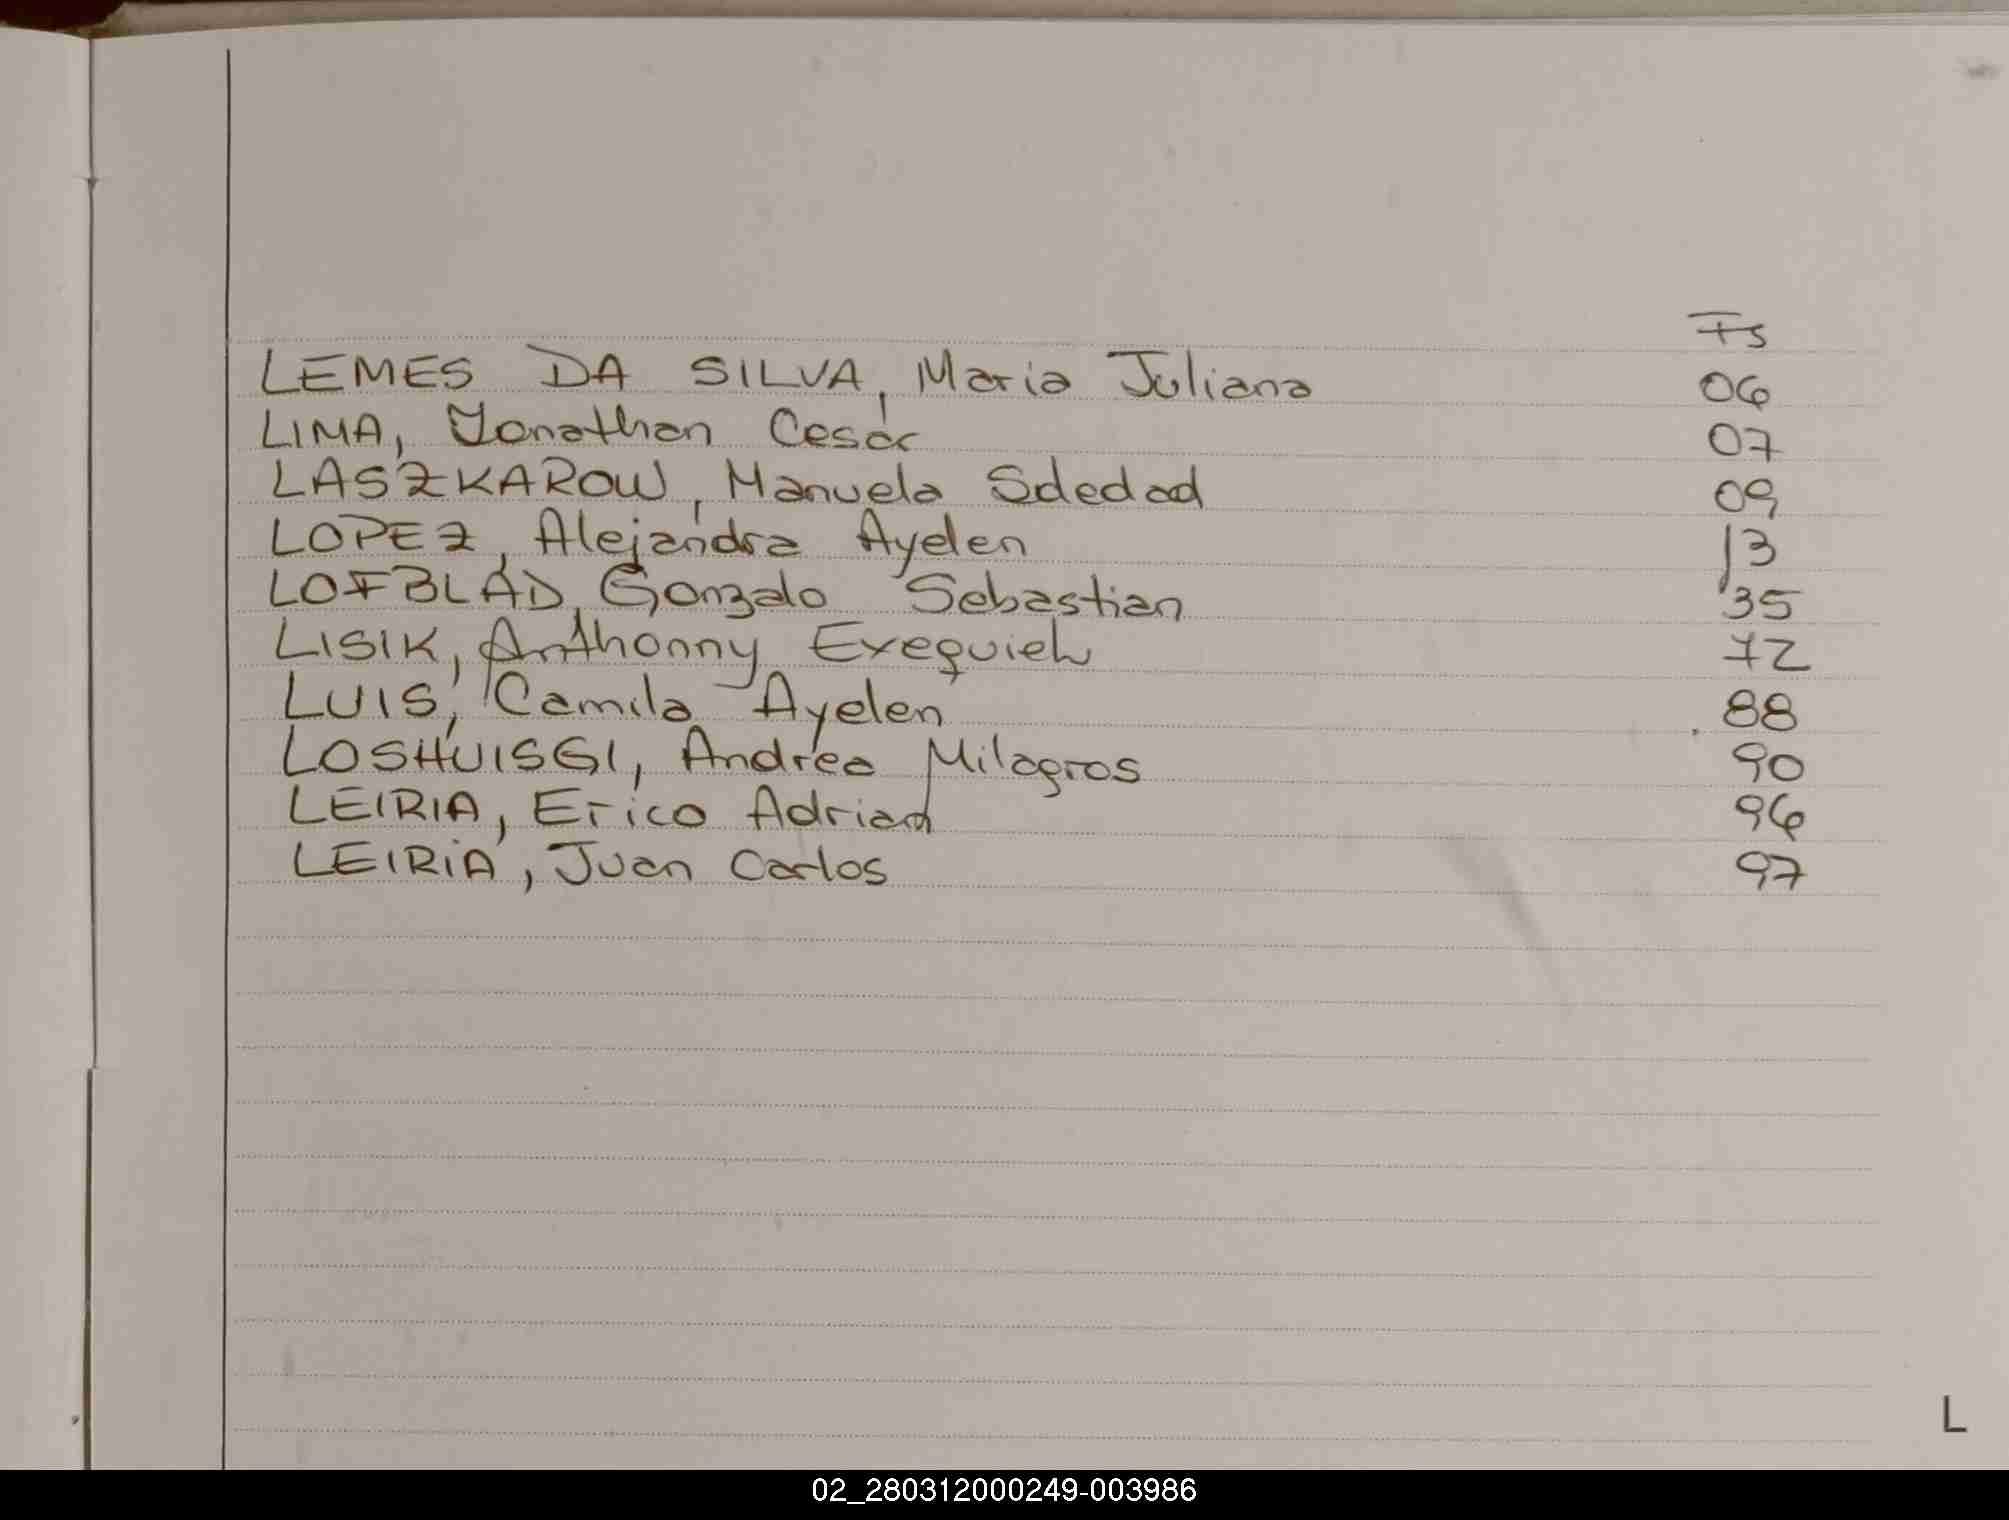 Fs
LEMES DA SILVA, Maria Juliana 06
LIMA, Jonathan Cesár 07
LASZKAROW, Manuela Soledad 09
LOPEZ, Alejandra Ayelen 13
LOFBLAD, Gonzalo Sebastian 35
LISIK, Anthonny Exequiel 72
LUIS, Camila Ayelen 88
LOSHUISGI, Andrea Milagros 90
LEIRIA, Erico Adrian 96
LEIRIA, Juan Carlos 97
L
02_280312000249-003986